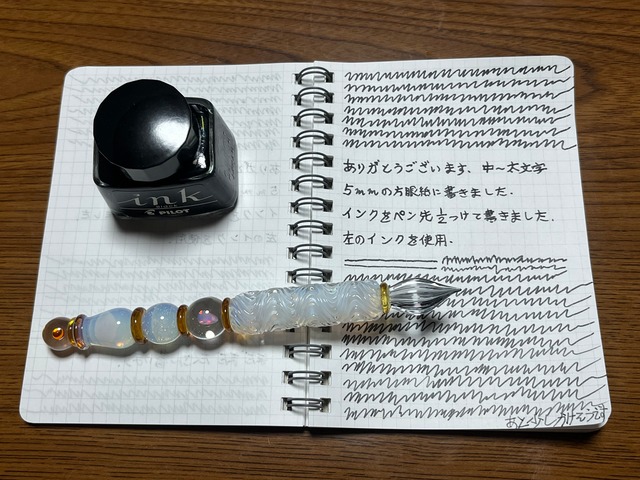 ink
BLACK
PILOT
ありがとうございます、中〜太文字
5mmの方眼紙に書きました.
インクをペン先1/2つけて書きました.
左のインクを使用.
あと少しかけそうです